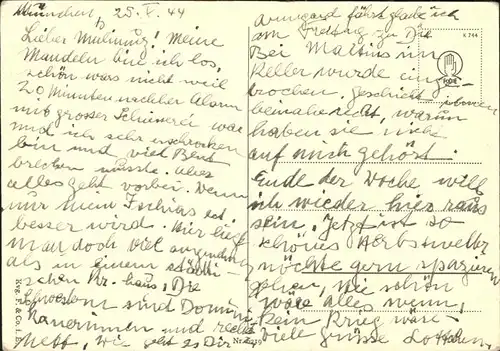 München, 25. X. 44
Lieber Mulinug! Meine
Mandeln bin ich los,
schön wars nicht weil
20 Minuten nachher Alarm
mit grosser Schiesserei war
und ich sehr erschrocken
bin und viel Blut
brechen musste. Aber
alles geht vorbei. Wenn
nur Euer Ischias
besser wird. Hier liegt
man doch viel
als in einem städti-
schen Kr.haus, Die
Schwestern sind Domini-
kanerinnen und recht
nett, wie geht es Dir
fährt glaube ich
am Freitag zu Dir
Bei Mattius im
Keller wurde einge-
brochen. Geschieht ihnen
beinahe recht, warum
haben sie nicht
auf mich gehört.
Ende der Woche will
ich wieder hier raus
sein. Jetzt ist so
schönes Herbstwetter
möchte gern spazieren
gehen, wie schön
wäre alles wenn
kein Krieg wäre.
Viele Grüsse
K 744